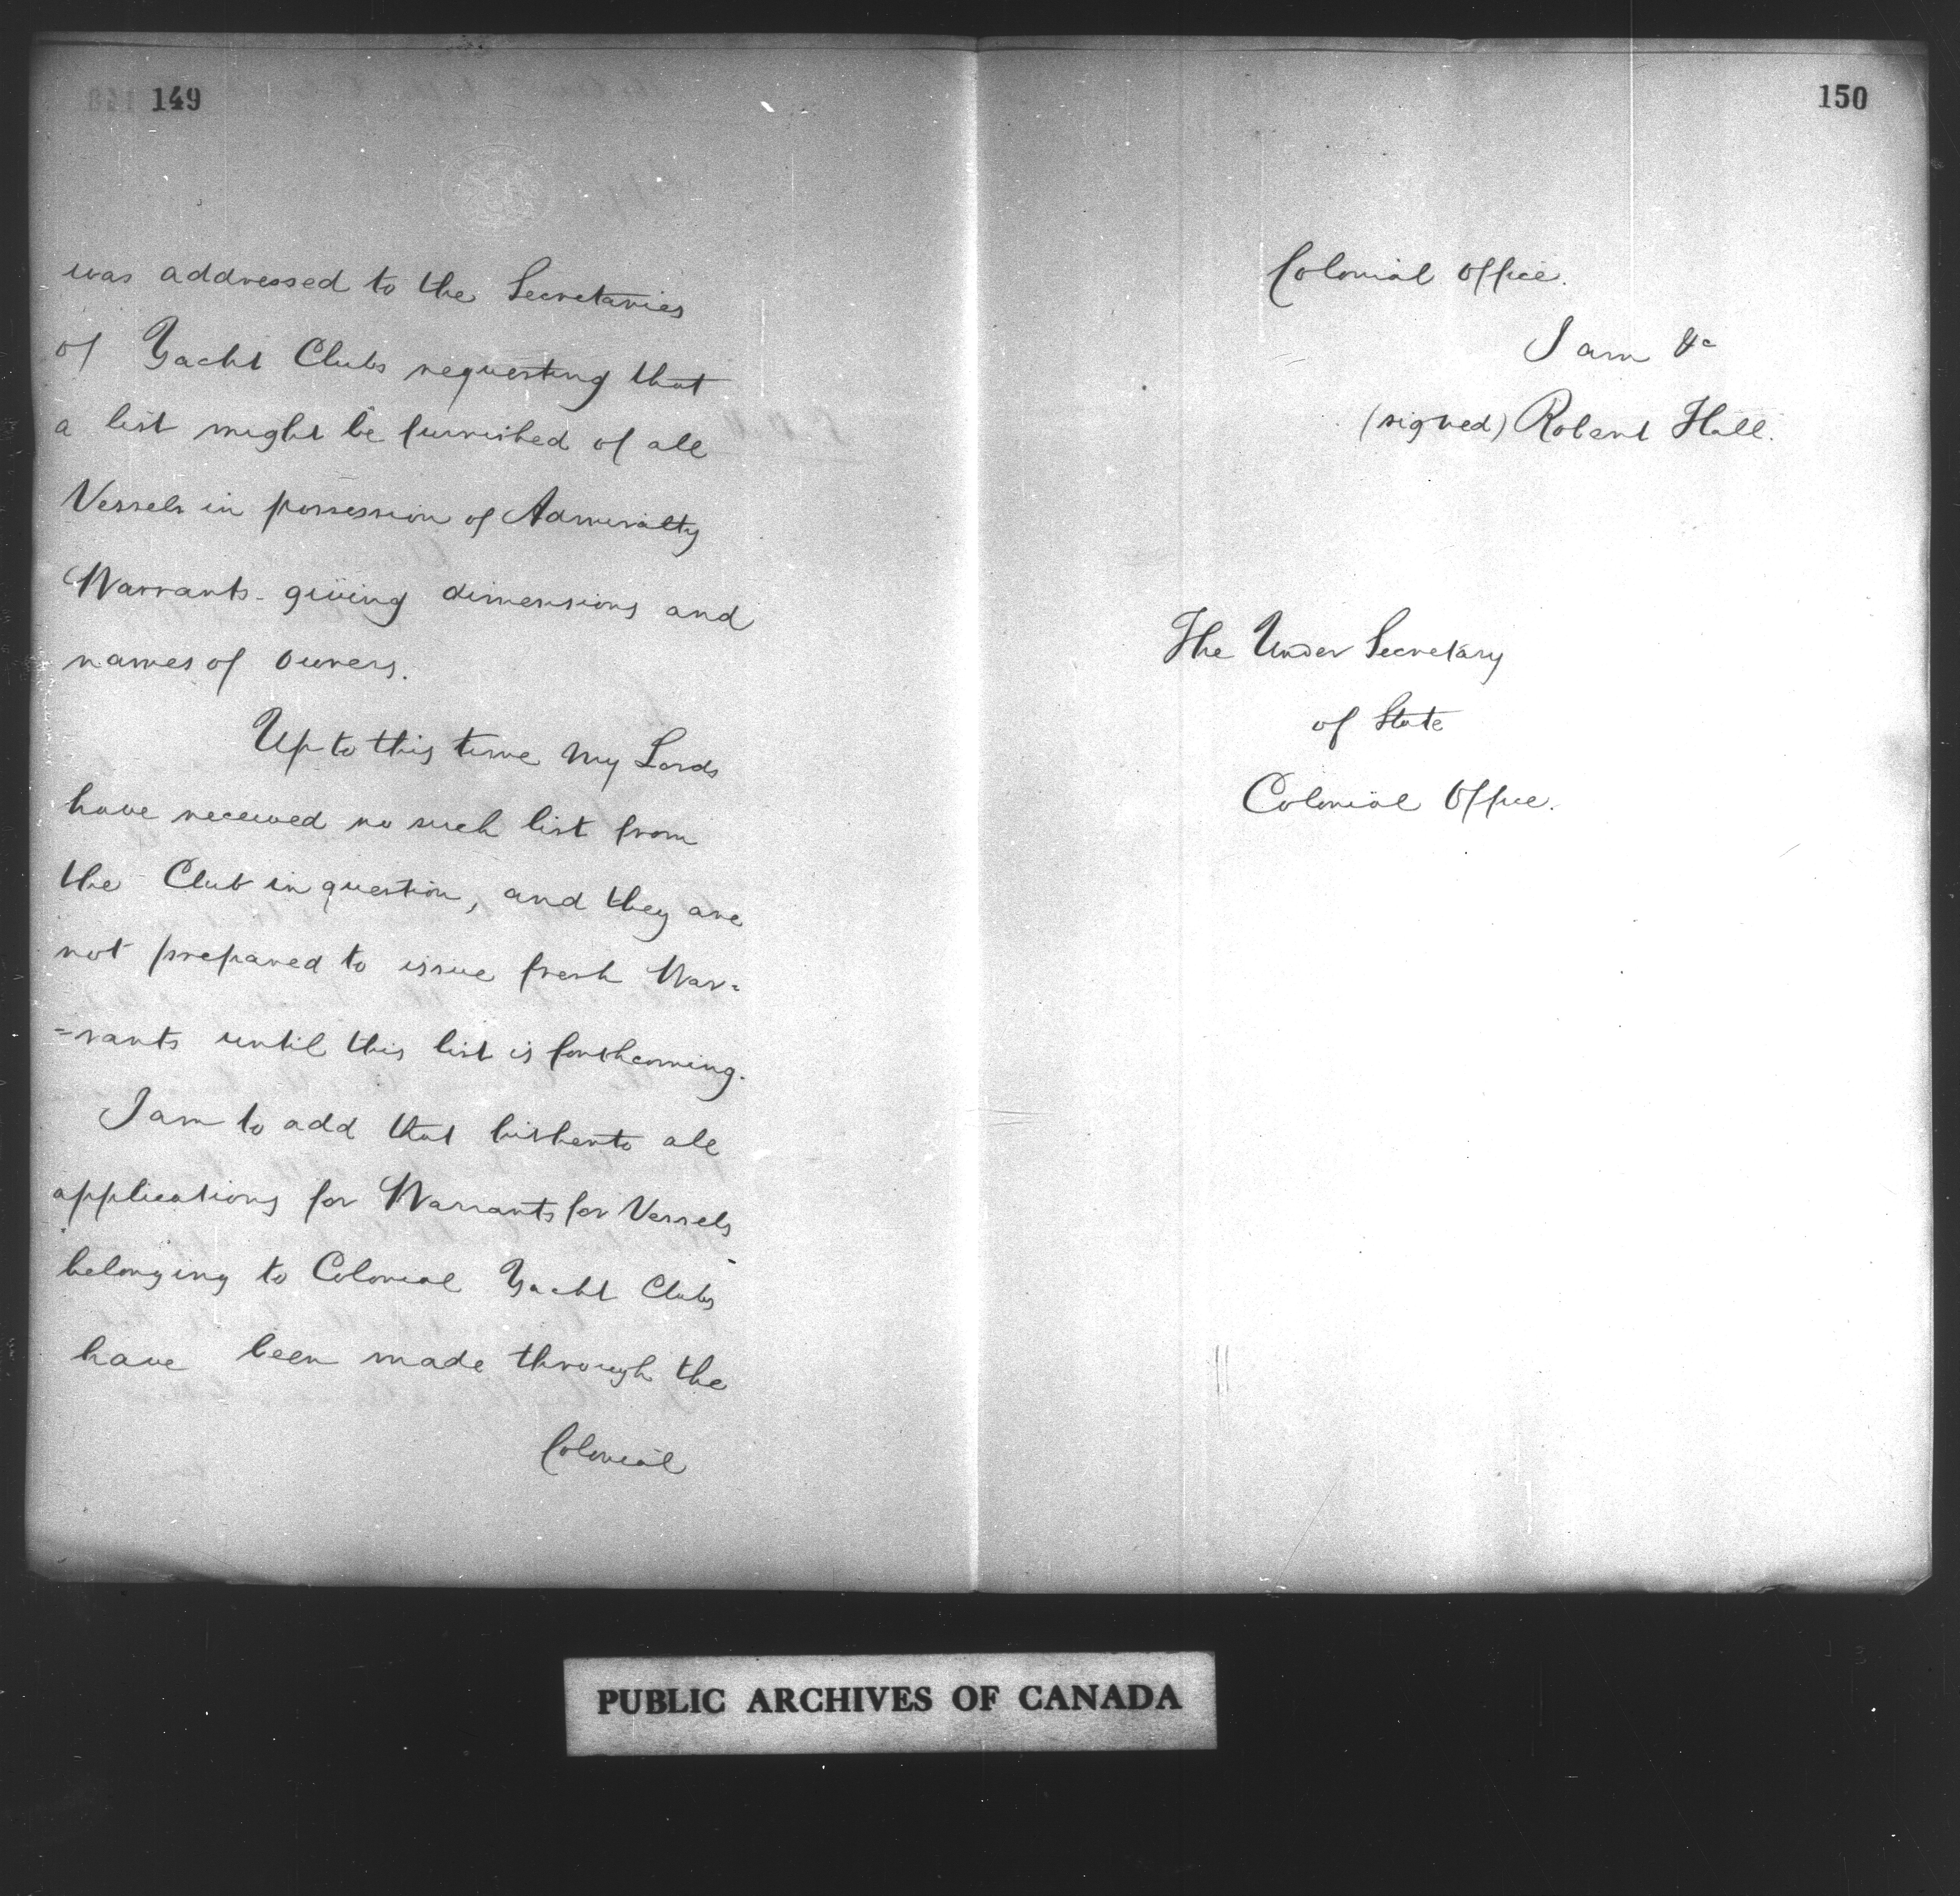 149
was addressed to the Secretaries
of Yacht Clubs requesting that
a list might be furnished of all
Vessels in possession of Admiralty
Warrants - giving dimensions and
names of owners.
Up to this time My Lords
have received no such list from
the Club in question, and they are
not prepared to issue fresh War=
=rants until this list is forthcoming.
I am to add that hitherto all
applications for Warrants for Vessels
belonging to Colonial Yacht Clubs
have been made through the
Colonial
150
Colonial Office.
I am &c
(signed) Robert Hall.
The Under Secretary
of State
Colonial Office.
PUBLIC ARCHIVES OF CANADA